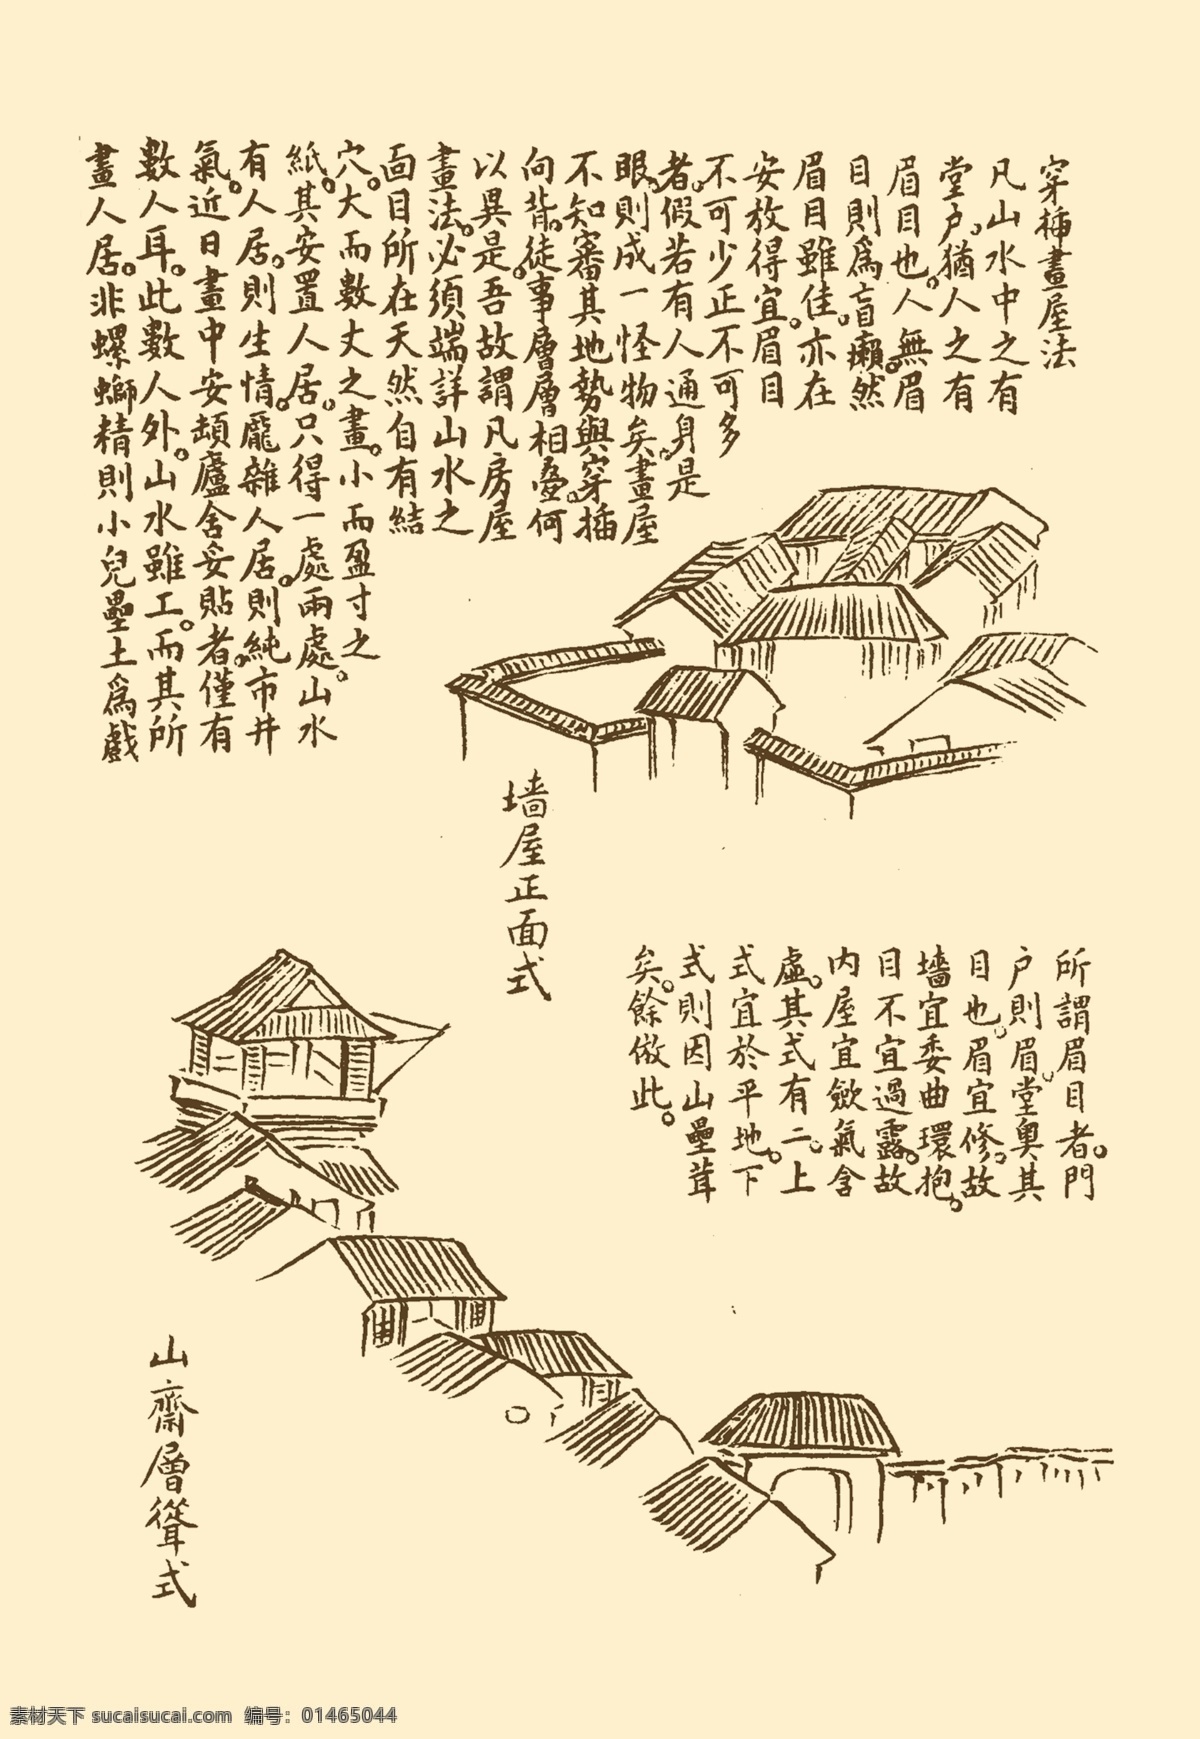 穿插畫屋法
凡山水中之有
堂户。猶人之有
眉目也。人無眉
目則爲盲癩。然
眉目雖佳。亦在
安放得宜。眉目
不可少正不可多
者。假若有人通身是
眼。則成一怪物矣。畫屋
不知審其地勢與穿插
向背。徒事層層相疊。何
以異是。吾故謂凡房屋
畫法。必須端詳山水之
面目所在天然自有結
穴。大而數丈之畫。小而盈寸之
紙。其安置人居。只得一處兩處。山水
有人居。則生情。龐雜人居。則純市井
氣。近日畫中安頓廬舍妥貼者。僅有
數人耳。此數人外。山水雖工。而其所
畫人居。非螺螄精則小兒壘土爲戲
墙屋正面式
所謂眉目者。門
户則眉。堂奥其
目也。眉宜修。故
墻宜委曲環抱。
目不宜過露。故
内屋宜歛氣含
虚。其式有二。上
式宜於平地。下
式則因山壘茸
矣。餘倣此。
山齋層聳式
素材天下 sucaisucai.com 编号：01465044